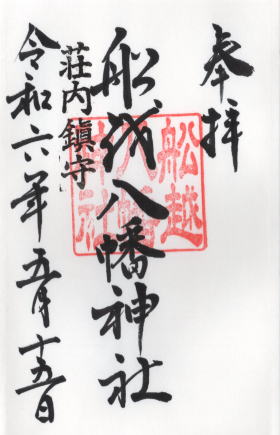 奉拝
船越八幡神社
船越
八幡
神社
荘内鎮守
令和六年五月十五日